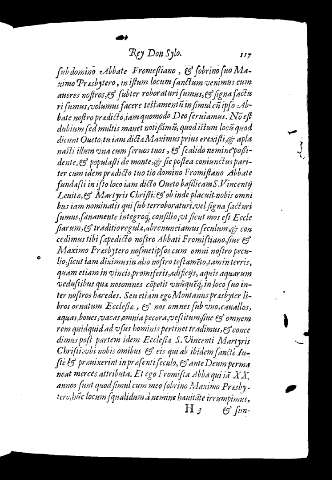 Rey Don Sylo. 117
sub domino Abbate Fromestiano, & sobrino suo Ma-
ximo Presbytero, in istum locum sanctum venimus cum
aures nostros, & subter roboraturi sumus, & signa factu
ri sumus, volumus facere testamentū in simul cū ipso Ab-
bate nostro prædicto, iam quomodo Deo seruiamus. No est
dubium sed multis manet notissimū, quod istum locū quod
dicunt Oueto, tu iam dicte Maximus prius erexisti & apla
nasti illum vna cum seruos tuos, & scalido nemine possi-
dente, & populasti de monte, & sic postea coniunctus pari-
ter cum idem prædicto tuo tio domino Fromistano Abbate
fundasti in isto loco iam dicto Oueto basilicam S. Vincentij
Leuitæ, & Martyris Christi: & ob inde placuit nobis omni
bus iam nominatis qui sub terroboraturi, vel signa facturi
sumus, sanamente integroq; consilio, vt sicut mos est Eccle
siarum, & traditio regula, abrenunciamus seculum, & con
cedimus tibi sæpedicto nostro Abbati Fromistiano, siue &
Maximo Presbytero nosmetipsos cum omni nostro pecu-
lio, sicut iam diximus in alio nostro testamēto, tam in terris,
quam etiam in vincis promiseris, ædificijs, aquis aquarum
ve
bus qua nos omnes

ter nostros hæredes. Seu etiam ego Montanus præsbyter li-
bros ornatum Ecclesiæ, & nos omnes sub vno, cauallos,
aquas, boues, vacas, omnia pecora, vestitum siue & omnem
rem quidquid ad vsus hominis pertinet tradimus, & conce
dimus post partem idem Ecclesiæ S. Vincenti Martyris
Christi: vbi nobis omibus & eis qui ab ibidem sancti Iu-
sti & præuixerint in præsenti seculo, & ante Deum perma
neat merces attributa. Et ego Fromista Abba qui iā XX.
annos sunt quod simul cum meo sobrino Maximo Presby-
tero, hūc locum squalidum à nemine habitāte irrumpimus,
H 3 & fun-